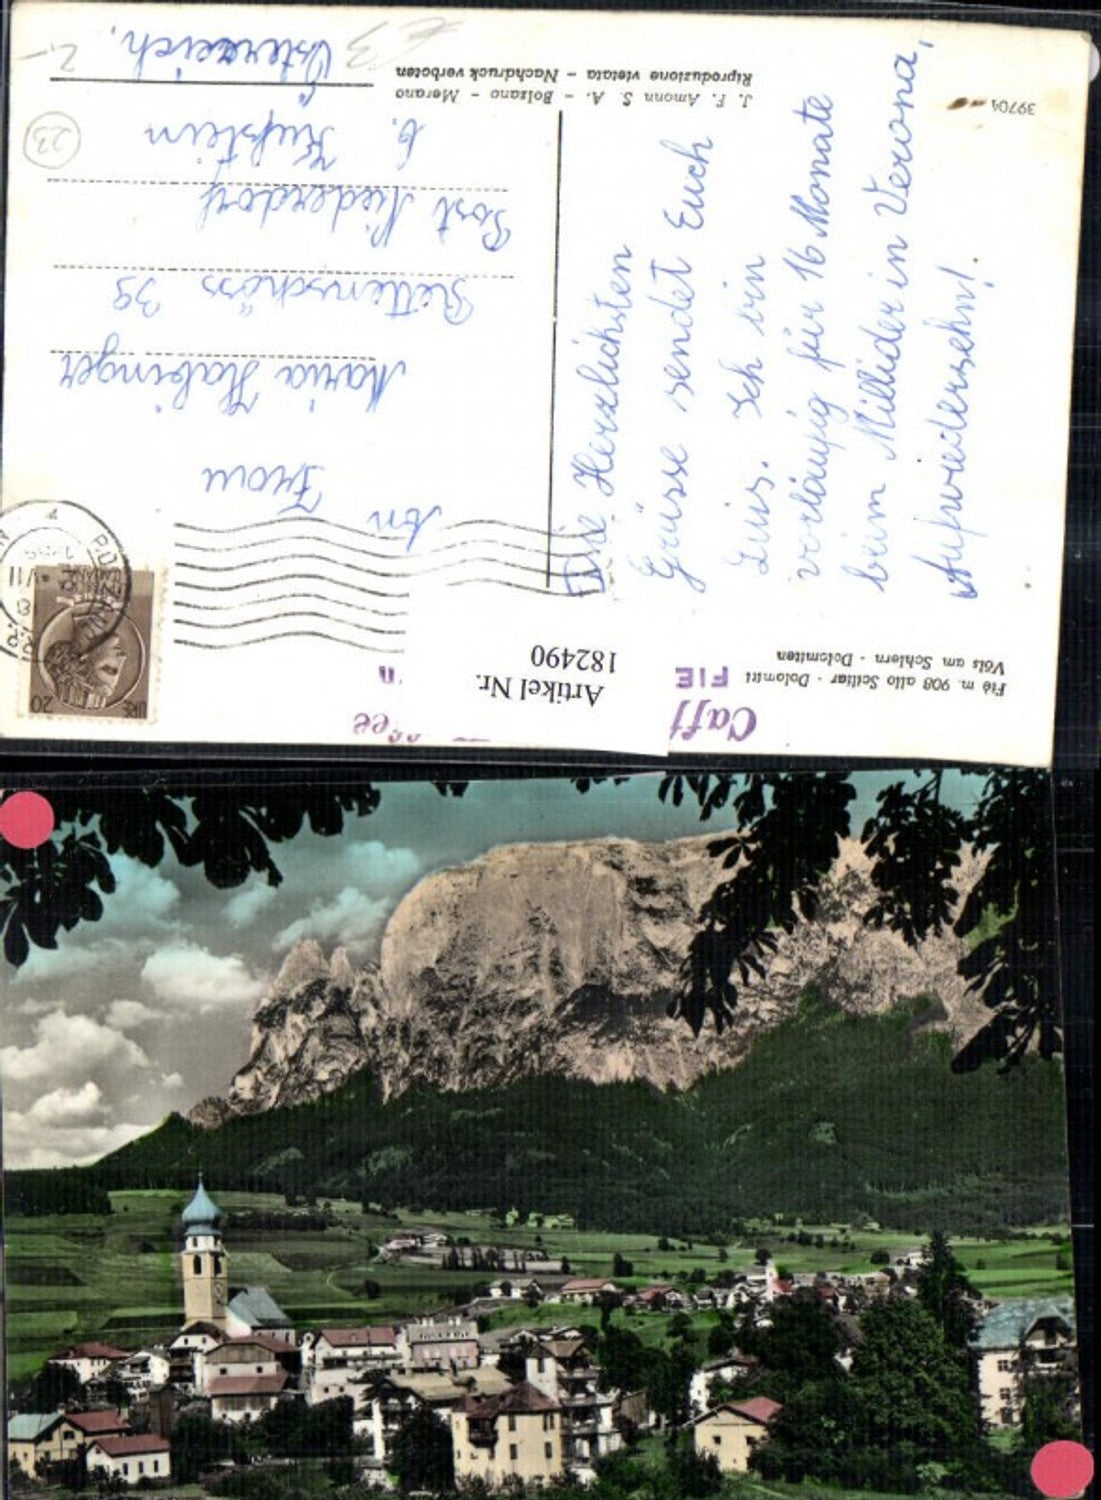 Die Herzlichsten
Grüsse sendet Euch
Luis. Ich bin
vorläufig für 16 Monate
beim Millider in Verona,
Aufwiedersehn!
An
Frau
Maria Habinger
Rettenschöss 39
Post Niederdorf
b. Kufstein
Österreich,
J. F. Amonn S. A. - Bolzano - Merano
Riproduzione vietata - Nachdruck verboten
39704
Fiè m. 908 allo Sciliar - Dolomiti
Völs am Schlern - Dolomiten
Caff
FIE
Artikel Nr.
182490
LIRE 20
23